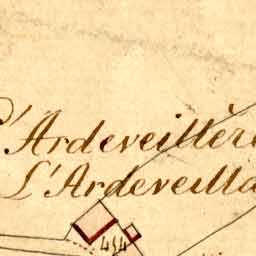 L'Ardeveillère
L'Ardeveilla
414